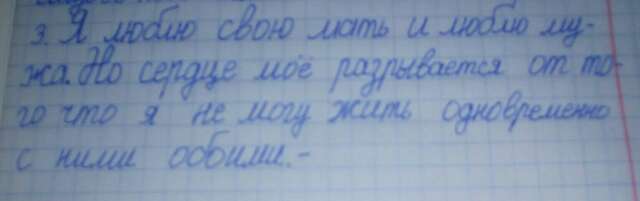 3. Я люблю свою мать и люблю му-
жа. Но сердце моё разрывается от то-
го что я не могу жить одновременно
с ними обоими. -